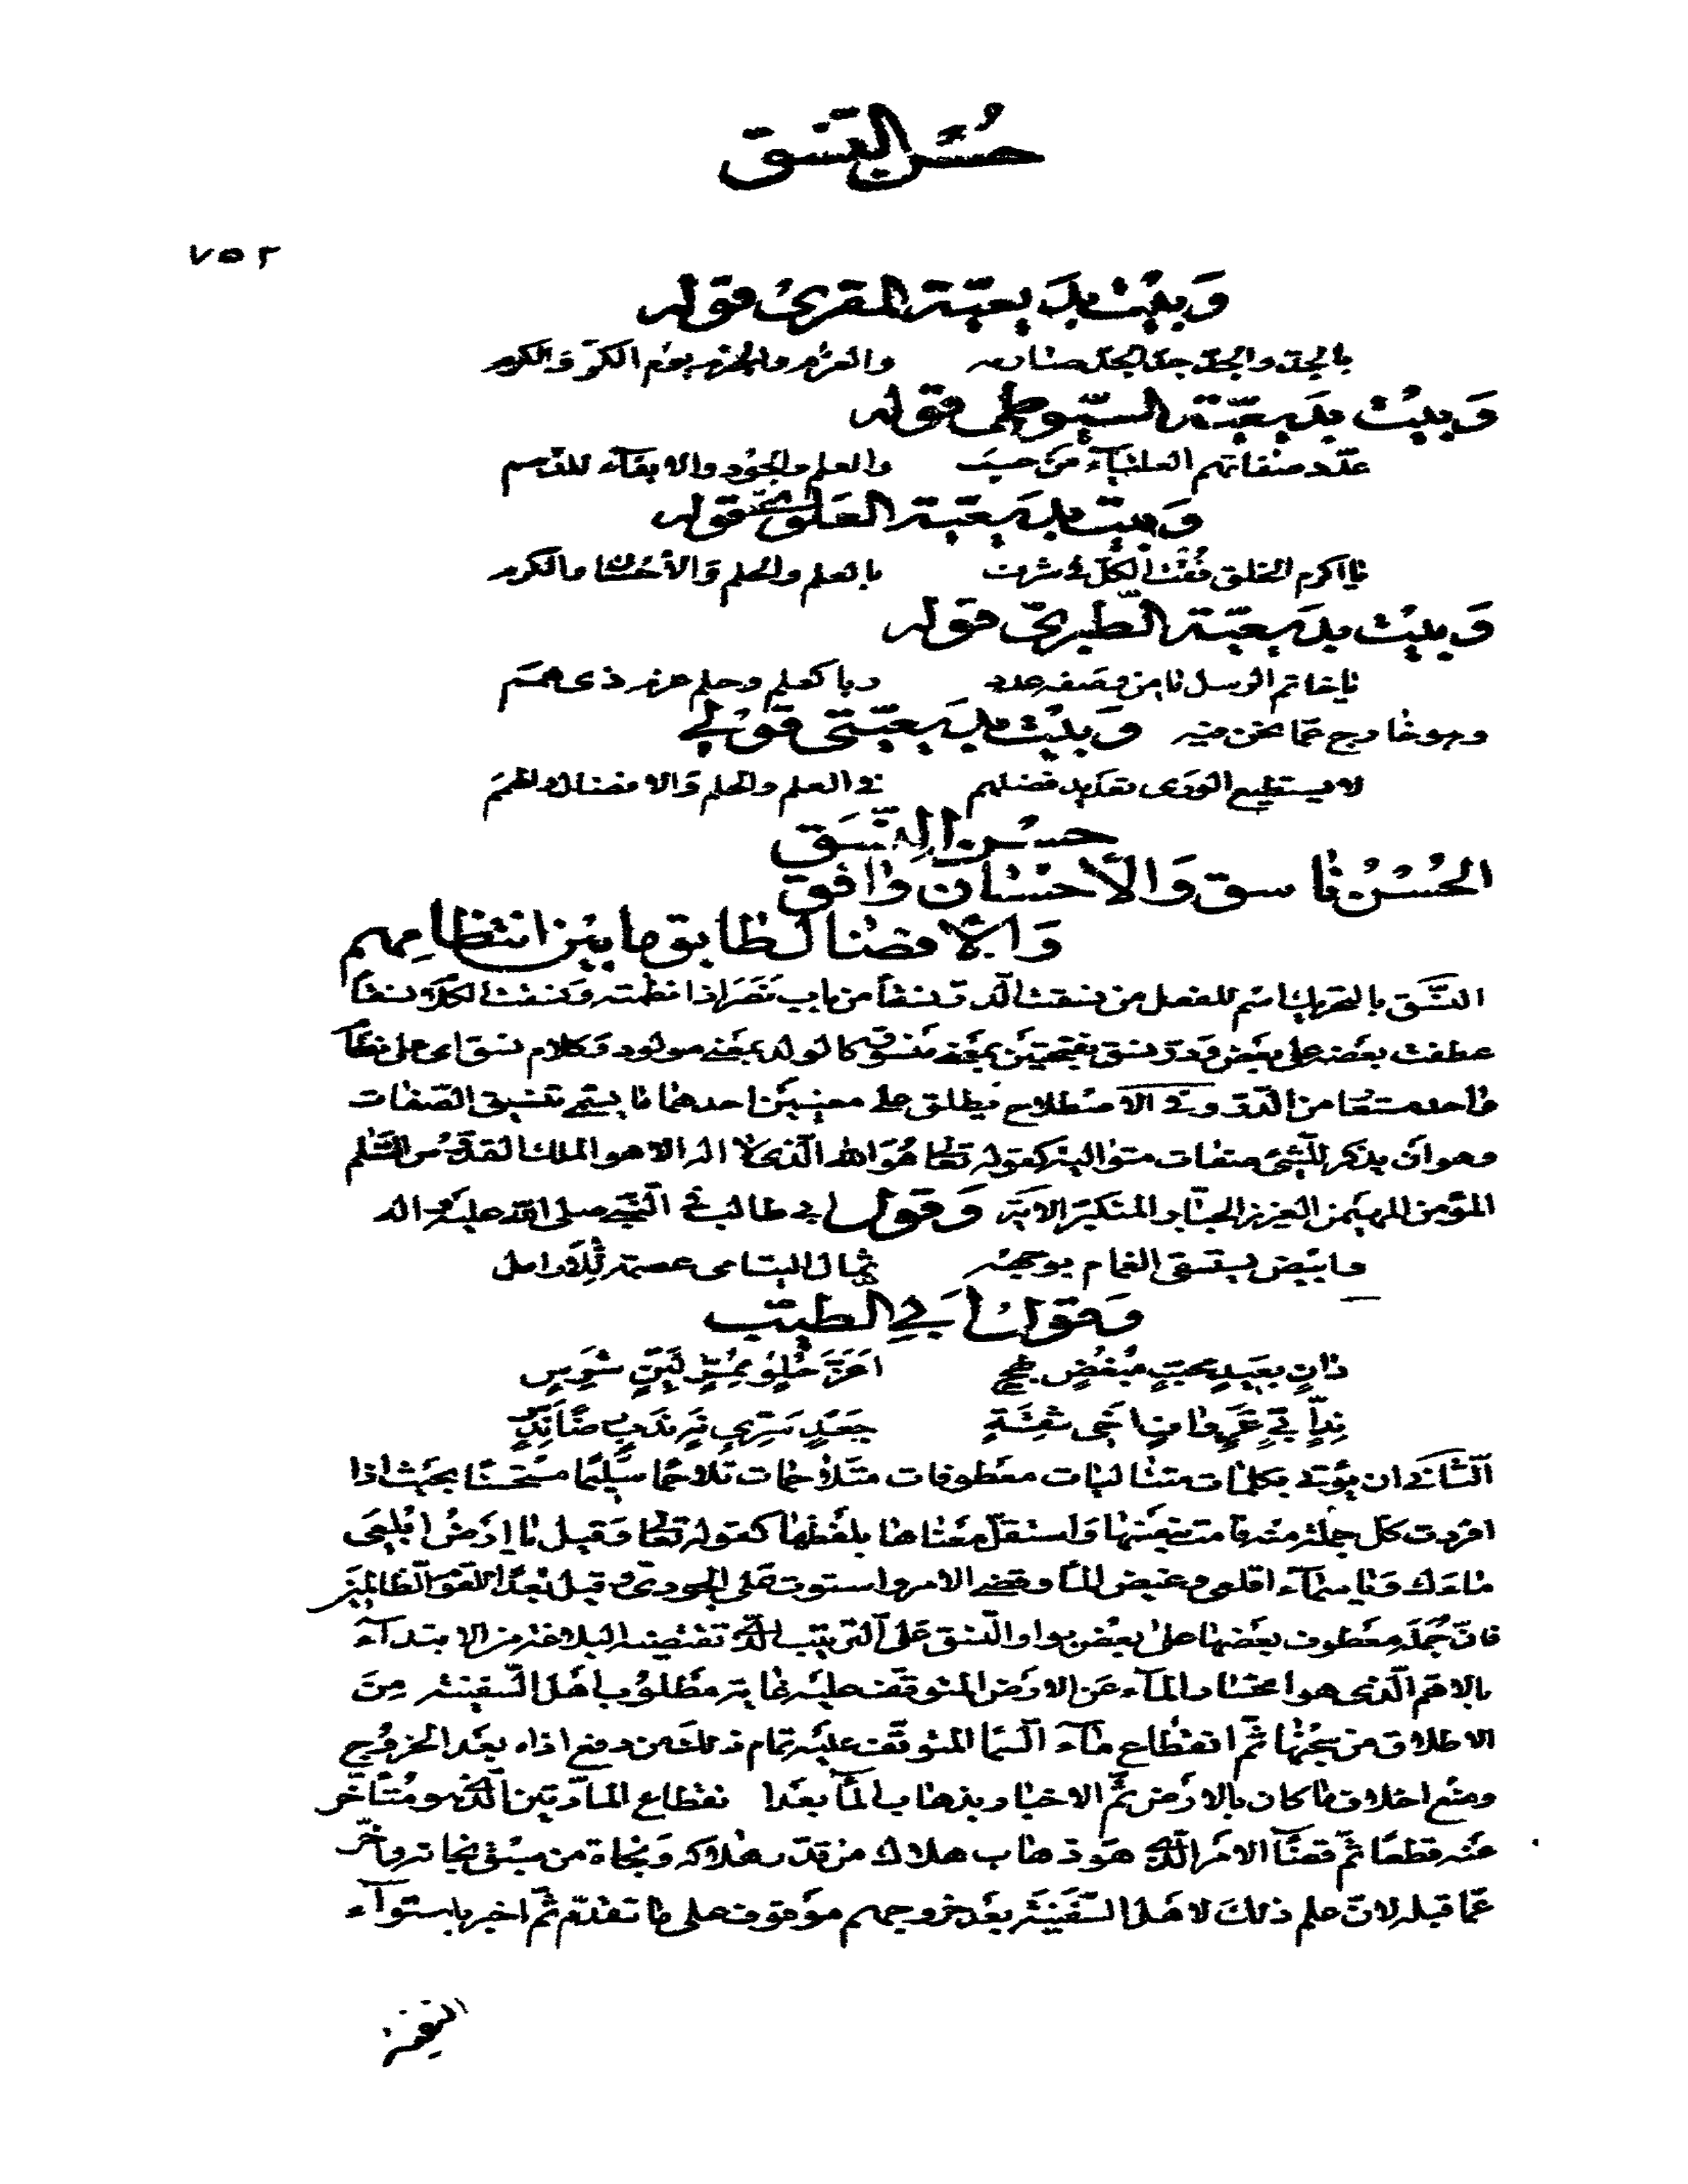 حُسْن النّسَق
٧٥٢
وَبيْت بَديعيّة المقرئ قوله
بالجدّ والجدّ جدّ الجدّ والعزم والحزم يوم الكرّ والكرم
وَبيْت بَديعيّة السّيوطى قوله
عدّد صفاتهم العلياء من حسب والعلم والجود والايفاء للذمم
وَبيت بَديعيّة العَلوىّ قوله
يا اكرم الخلق فُقْت الكلّ فى شرف بالعلم والحلم وَالأحْسَان والكرم
وَبيْت بَديعيّة الطبرىّ قوله
يا خاتم الرسل يا من وصفه عدد وباكعلم وحلم عزم ذى همَم
وهو خارج عمّا نحن فيه وَبيْت بَديعيّتى قوْلى
لا يستطيع الوَرَى تعديد فضلهم فى العلم والحلم وَالافضال والهمَم
حسْن النّسَق
الحُسْنُ ناسق وَالأحْسَان وافق
وَالأفضال طابق ما بيْن انتظامِهم
النّسَق بالتحريك اسْم للفعل من نسقت الدّر نسقاً من باب نَصَر اذا نظمته وَنسَقت الكلام نسقاً
عطفت بعضه على بعض وَدرّ نسق بفتحتين بمعنى منسوق كالولد بمعنى مولود وَكلام نسق اى على نظام
واحد مستعار من الدّر وفى الاصطلاح يطلق على معنيين احدهما ما يسمّى تنسيق الصّفات
وهو أن يذكر للشّئ صفات متوالية كقوله تعالى هُوَ الله الّذى لا اله الا هو الملك القدّوس السّلم
المؤمن المهيمن العزيز الجبّار المتكبّر الآية وَقول ابى طالب فى النّبى صلى الله عليه وَاله
وابيض يستسقى الغمام بوجهه ثمال اليتامى عصمة للارامل
وقول ابى الطيّب
دانٍ بعيدٍ محبّ مبغضٍ بهج اغرّ حُلوٍ ممرٍّ ليّنٍ شرِسٍ
ندٍ ابىّ غَرٍ وافٍ اخى ثقةٍ جعدٍ سَرِىٍ نَهٍ ندبٍ رضًا نَدُسٍ
الثّانى ان يؤتى بكلمات متتاليات معطوفات متلاحمات تلاحمًا سليمًا مستحسنًا بحيث اذا
افردت كل جملة منه قامت بنفسها وَاستقلّ معناها بلفظها كقوله تعالى وَقيل يا ارض ابلعى
ماءك وَيا سمآء اقلعى وغيض المآء وقضى الامر واستوت على الجودىّ وقيل بُعدًا للقوم الظالمين
فانّ جُمَله معطوف بعضها على بعض بواو النسق على الترتيب الّذى تقتضيه البلاغة من الابتدآء
بالاهمّ الّذى هو انحسار المآء عن الارض المتوقف عليه غاية مطلوب اهل السّفينة مِن
الاطلاق من سجنها ثمّ انقطاع مآء السّمآء المتوقّف عليه تمام ذلك من دفع اذاه بعد الخروج
ومنْع اخلاف ما كان بالارض ثمّ الاخبار بذهاب المآء بعد انقطاع المادّتين الّذى هو مُتأخّر
عنه قطعًا ثمّ قضآء الامر الّذى هوَ ذهاب هلاك من قدّر هلاكه وَنجاة من سبق نجاته وَاخّر
عمّا قبله لانّ علم ذلك لاهل السّفينة بعد خروجهم موقوف على ما تقدّم ثمّ اخبر باستوآء